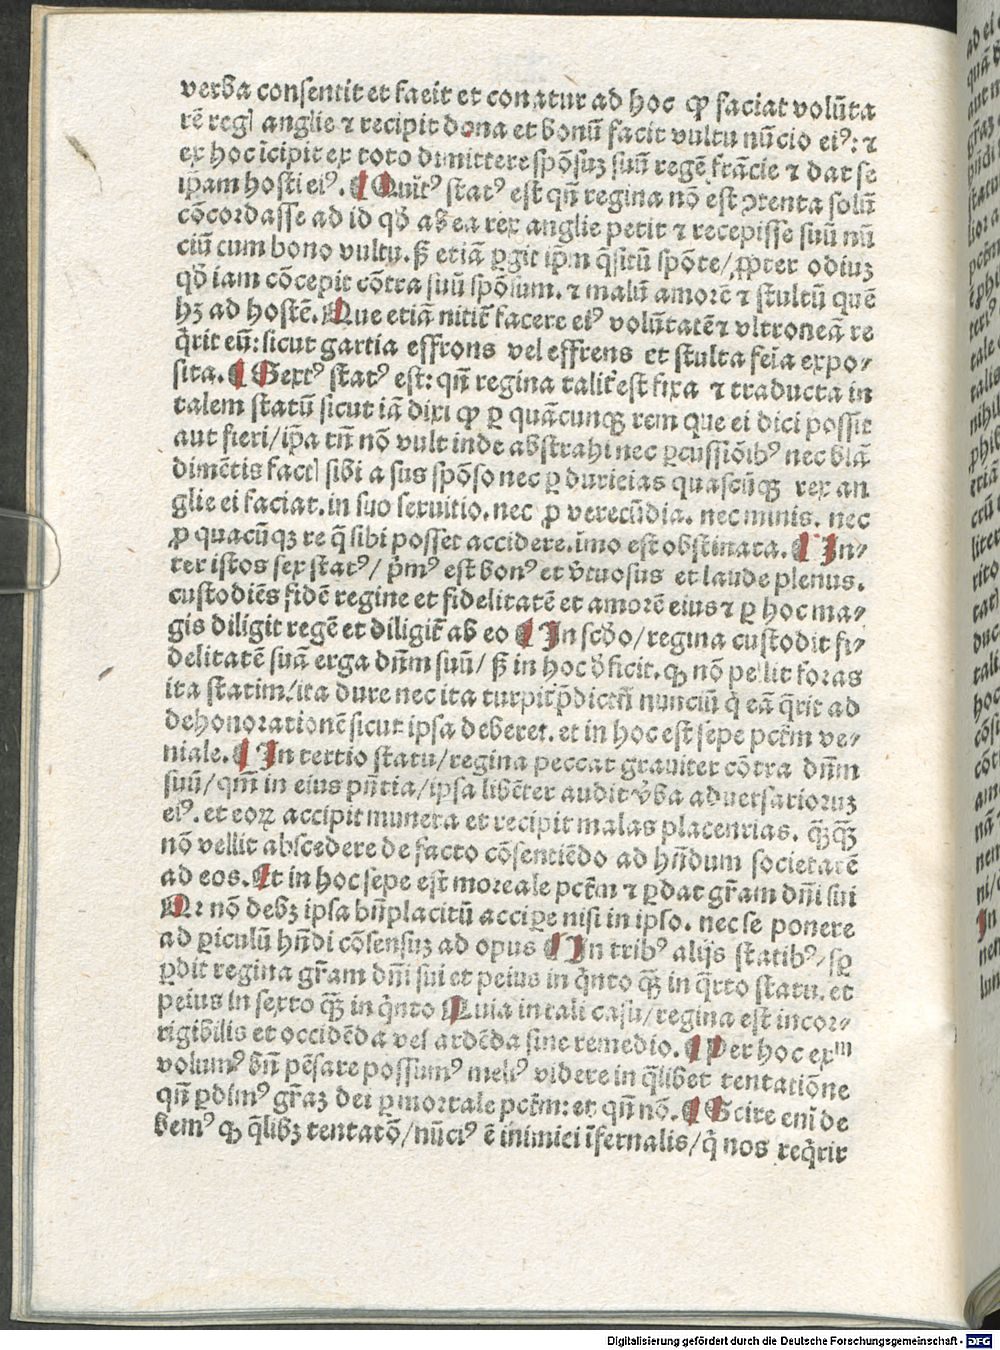 verba consentit et facit et conatur ad hoc ꝙ faciat volūta
tē regꝭ anglie ⁊ recipit dona et bonū facit vultū nūcio eiꝰ: ⁊
ex hoc īcipit ex toto dimittere spōsuꝫ suū regē frācie ⁊ dat se
ip̄am hosti eiꝰ. ¶ Quītꝰ statꝰ est qn̄ regina nō est ↄtenta solū
cōcordasse ad id qd̄ ab ea rex anglie petit ⁊ recepisse suū nū
ciū cum bono vultu. sꝫ etiā ꝑgit ip̄m q̄situ spōte/ ꝓpter odiuꝫ
qd̄ iam cōcepit cōtra suū spōsum. ⁊ malū amorē ⁊ stultū quē
hꝫ ad hostē. Que etiā nitit̄ facere eiꝰ volūtatē ⁊ vltroneā re
q̄rit eū: sicut gartia effrons vel effrens et stulta feīa expo-
sita. ¶ Sextꝰ statꝰ est: qn̄ regina talit̄ est fixa ⁊ traducta in
talem statū sicut iā dixi ꝙ ꝑ quācunqꝫ rem que ei dici possit
aut fieri/ ip̄a tn̄ nō vult inde abstrahi nec ꝑcussiōibꝰ nec blā
dimētis factꝭ sibi a suo spōso nec ꝑ duricias quascūqꝫ rex an
glie ei faciat. in suo seruitio. nec ꝓ verecūdia. nec minis. nec
ꝓ quacūqꝫ re q̄ sibi posset accidere. īmo est obstinata. ¶ In-
ter istos sex statꝰ/ p̄mꝰ est bonꝰ et v̄tuosus et laude plenus.
custodiēs fidē regine et fidelitatē et amorē eius ⁊ ꝑ hoc ma-
gis diligit regē et diligit̄ ab eo ¶ In scd̄o/ regina custodit fi-
delitatē suā erga dn̄m suū/ sꝫ in hoc d̄ficit. qꝫ nō pellit foras
ita statim/ ita dure nec ita turpit̄ p̄dictū nunciū q̄ eā q̄rit ad
dehonorationē sicut ipsa deberet. et in hoc est sepe pctm̄ ve-
niale. ¶ In tertio statu/ regina peccat grauiter cōtra dn̄m
suū/ qm̄ in eius pn̄tia/ ipsa libēter audit v̄ba aduersarioruꝫ
eiꝰ. et eoꝝ accipit munera et recipit malas placentias. q̄ꝫq̄ꝫ
nō vellit abscedere de facto cōsentiēdo ad hn̄dum societatē
ad eos. Et in hoc sepe est mortale pctm̄ ⁊ ꝑdat gr̄am dn̄i sui
Qr nō debꝫ ipsa bn̄placitū accipe nisi in ipso. nec se ponere
ad ꝑiculū hn̄di cōsensuꝫ ad opus ¶ In tribꝰ alijs statibꝰ/ sꝑ
ꝑdit regina gr̄am dn̄i sui et peius in q̄nto q̄ꝫ in q̄rto statu. et
peius in sexto q̄ꝫ in q̄nto Quia in tali casu/ regina est incor-
rigibilis et occidēda vel ardēda sine remedio. ¶ Per hoc exm
volumꝰ bn̄ pēsare possumꝰ meliꝰ videre in q̄libet tentatiōne
qn̄ ꝑdimꝰ gr̄aꝫ dei ꝑ mortale pctm̄: et qn̄ nō. ¶ Scire eni de
bemꝰ qꝫ q̄libꝫ tentatō/ nūciꝰ ē inimici īfernalis/ q̄ nos req̄rit
Digitalisierung gefördert durch die Deutsche Forschungsgemeinschaft - DFG